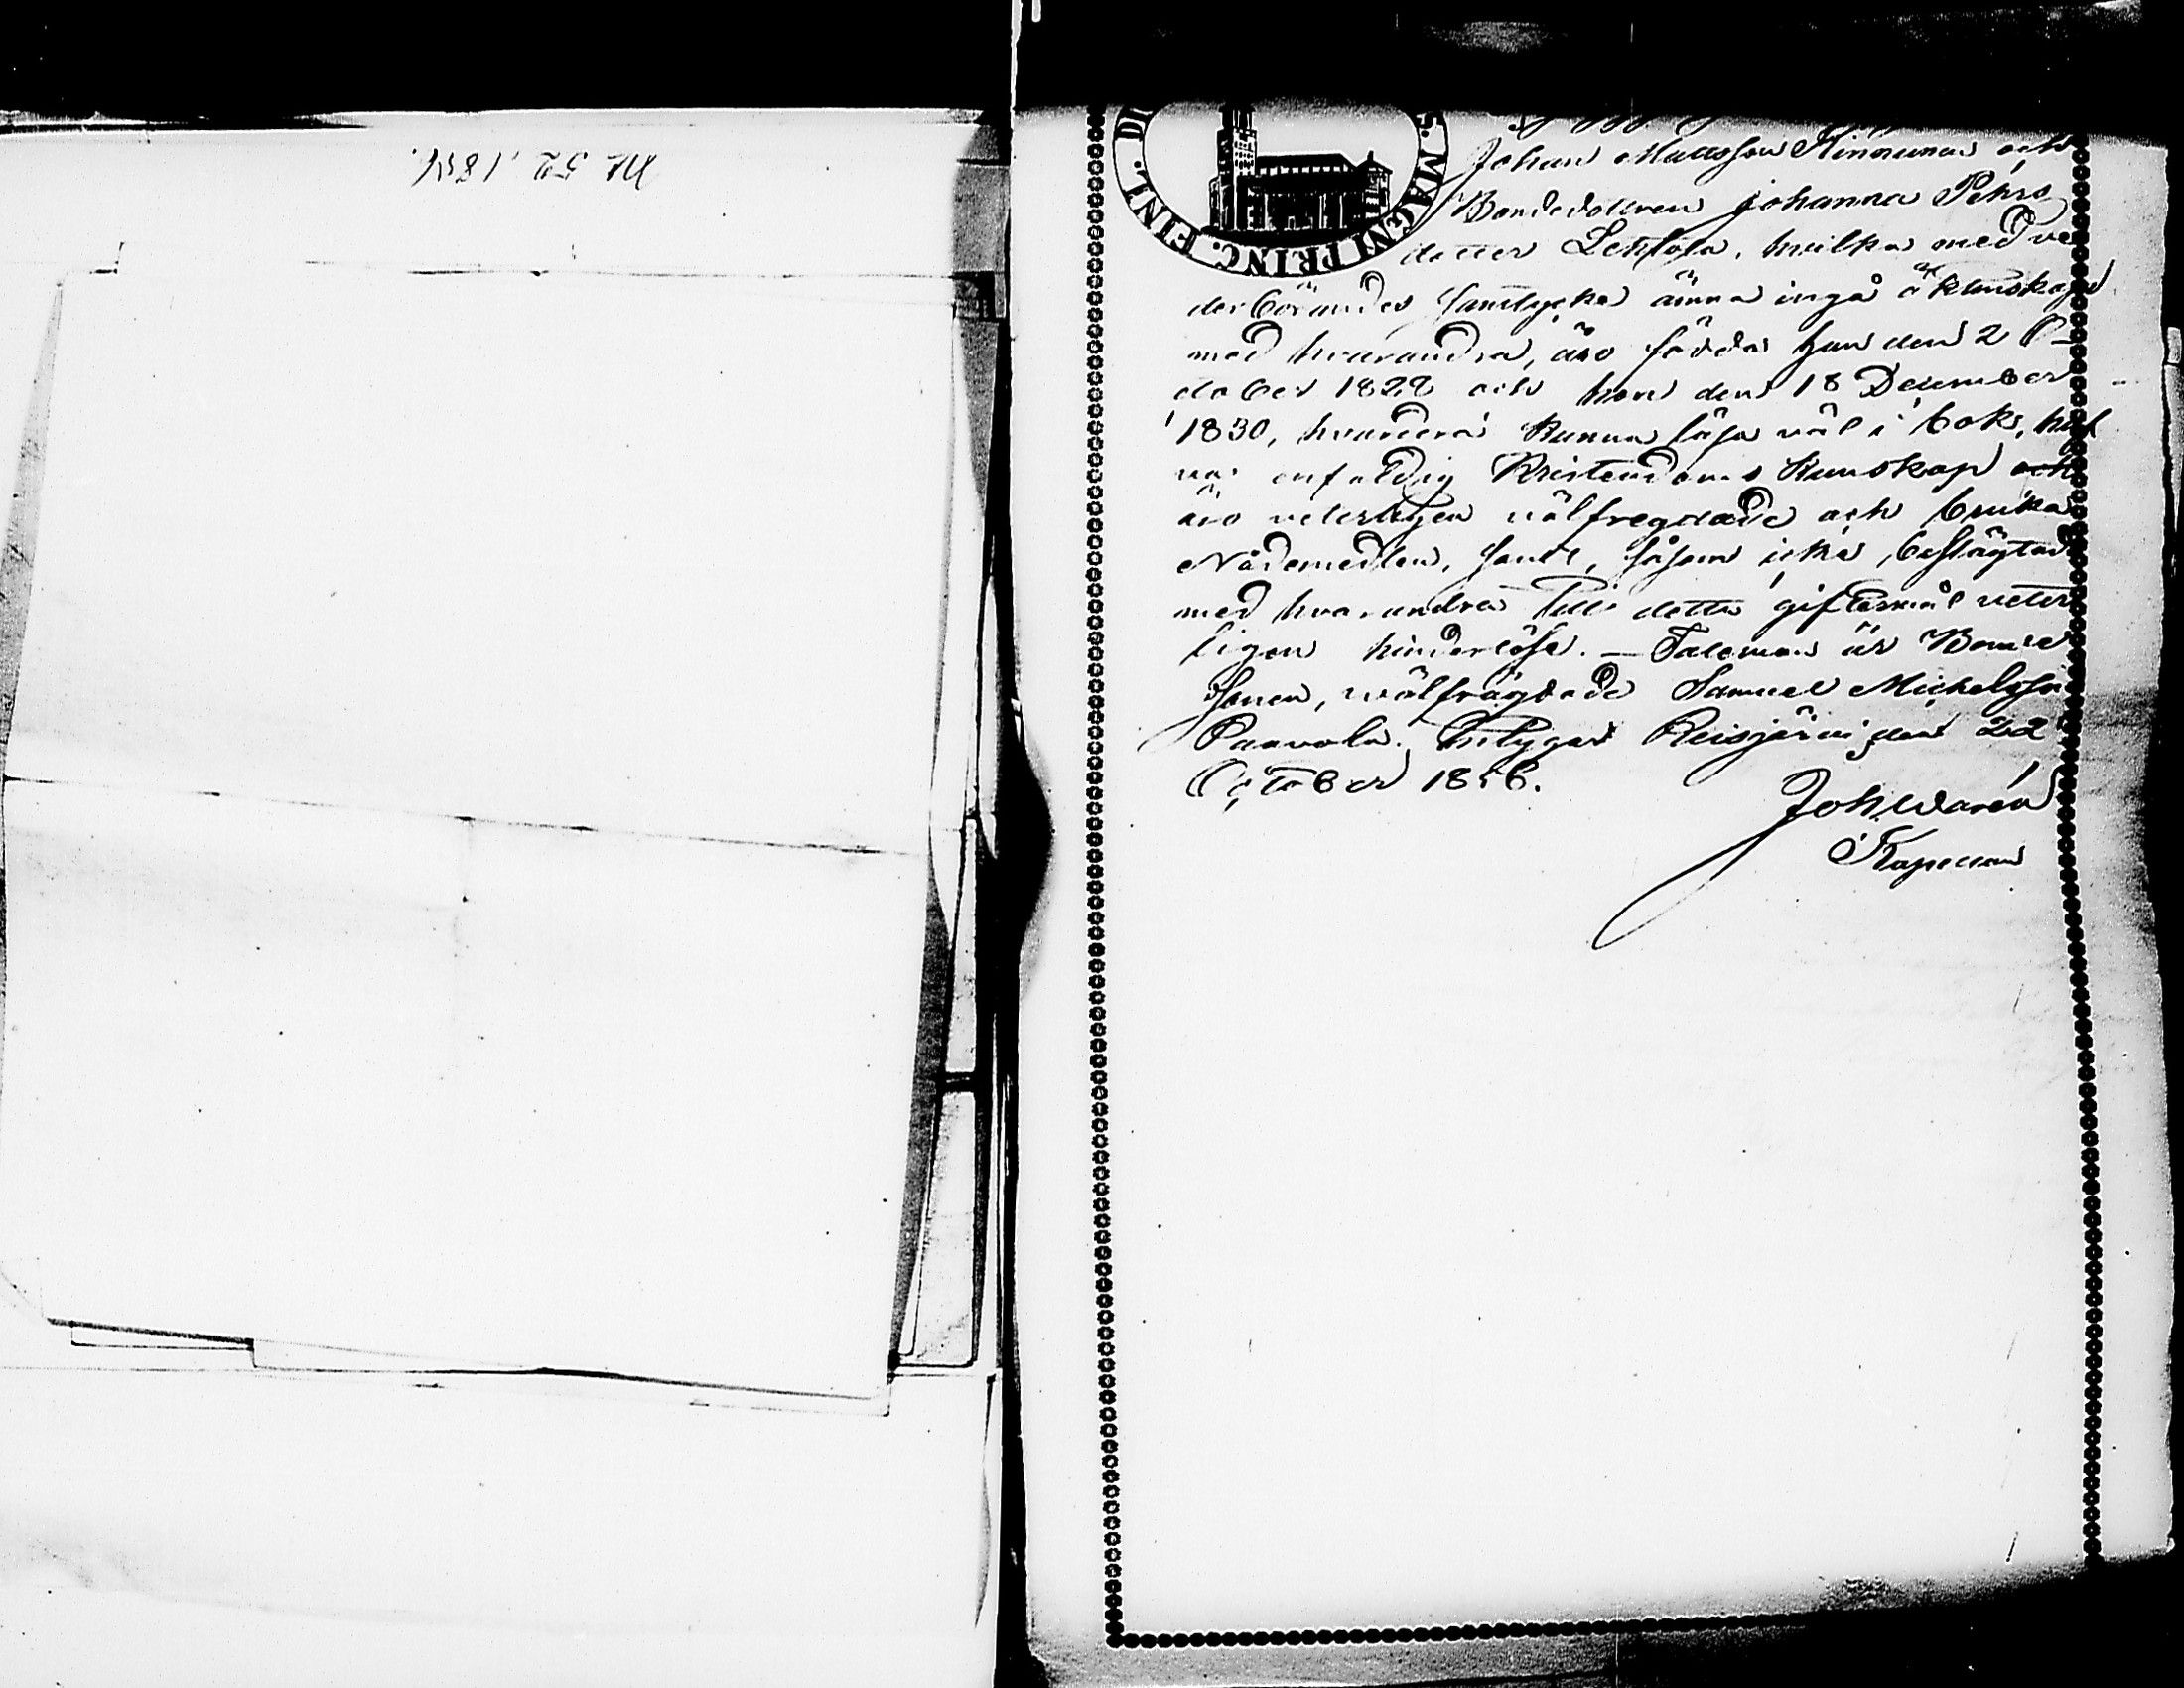 N 52, 1856.
DI
S. MAGNI PRINC. FINL.
Johan Mattsson Kinnunen och
Bondedottren Johanna Pehrs
dotter Lehtola, hvilka med ve
derbörandes samtycke ämna ingå äktenskap
med hvarandra, äro födde han den 2 O
ctober 1828 och hon den 18 December
1830, hvardera kunna läsa väl i bok, haf
va enfaldig Kristendoms Kunskap och
äro veterligen välfregdade och bruka
Nådemedlen, samt, såsom icke beslägtade
med hvarandra till detta giftermål veter
ligen hinderlöse. — Taleman är Bonde
sonen, wälfrägdade Samuel Michelsson
Paavola. Intygar Reisjärvi den 22
October 1856.
Joh. Warén
Kapellan